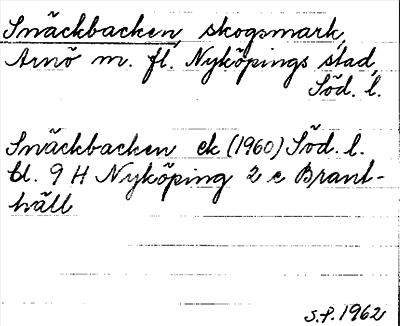 Snäckbacken, skogsmark,
Arnö m. fl. Nyköpings stad,
Söd. l.
Snäckbacken ek (1960) Söd. l.
bl. 9 H Nyköping 2 c Brant-
häll
S.P. 1962